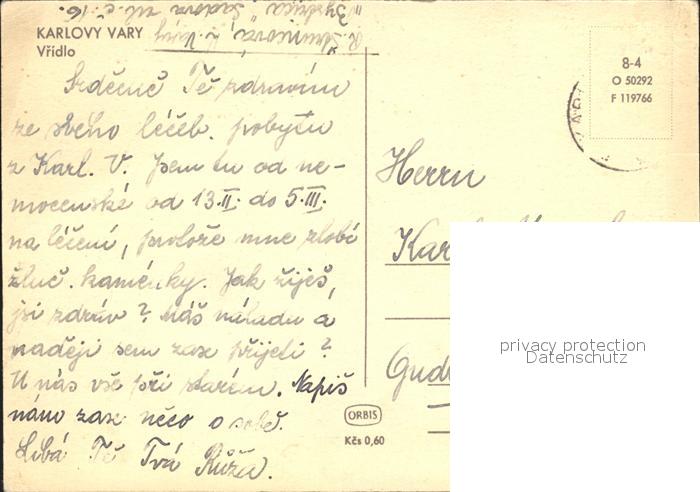 KARLOVY VARY
Vřídlo
Srdečně Tě zdravím
ze svého léčeb. pobytu
z Karl. V. Jsem tu od ne-
mocenské od 13.II. do 5.III.
na léčení, protože mne zlobí
žluč. kaménky. Jak žiješ,
jsi zdráv? Máš náladu a
naději sem zase přijeti?
U nás vše při starém. Napiš
nám zase něco o sobě.
Líbá Tě Tvá Růža.
8-4
O 50292
F 119766
Herrn
ORBIS
Kčs 0,60
privacy protection
Datenschutz